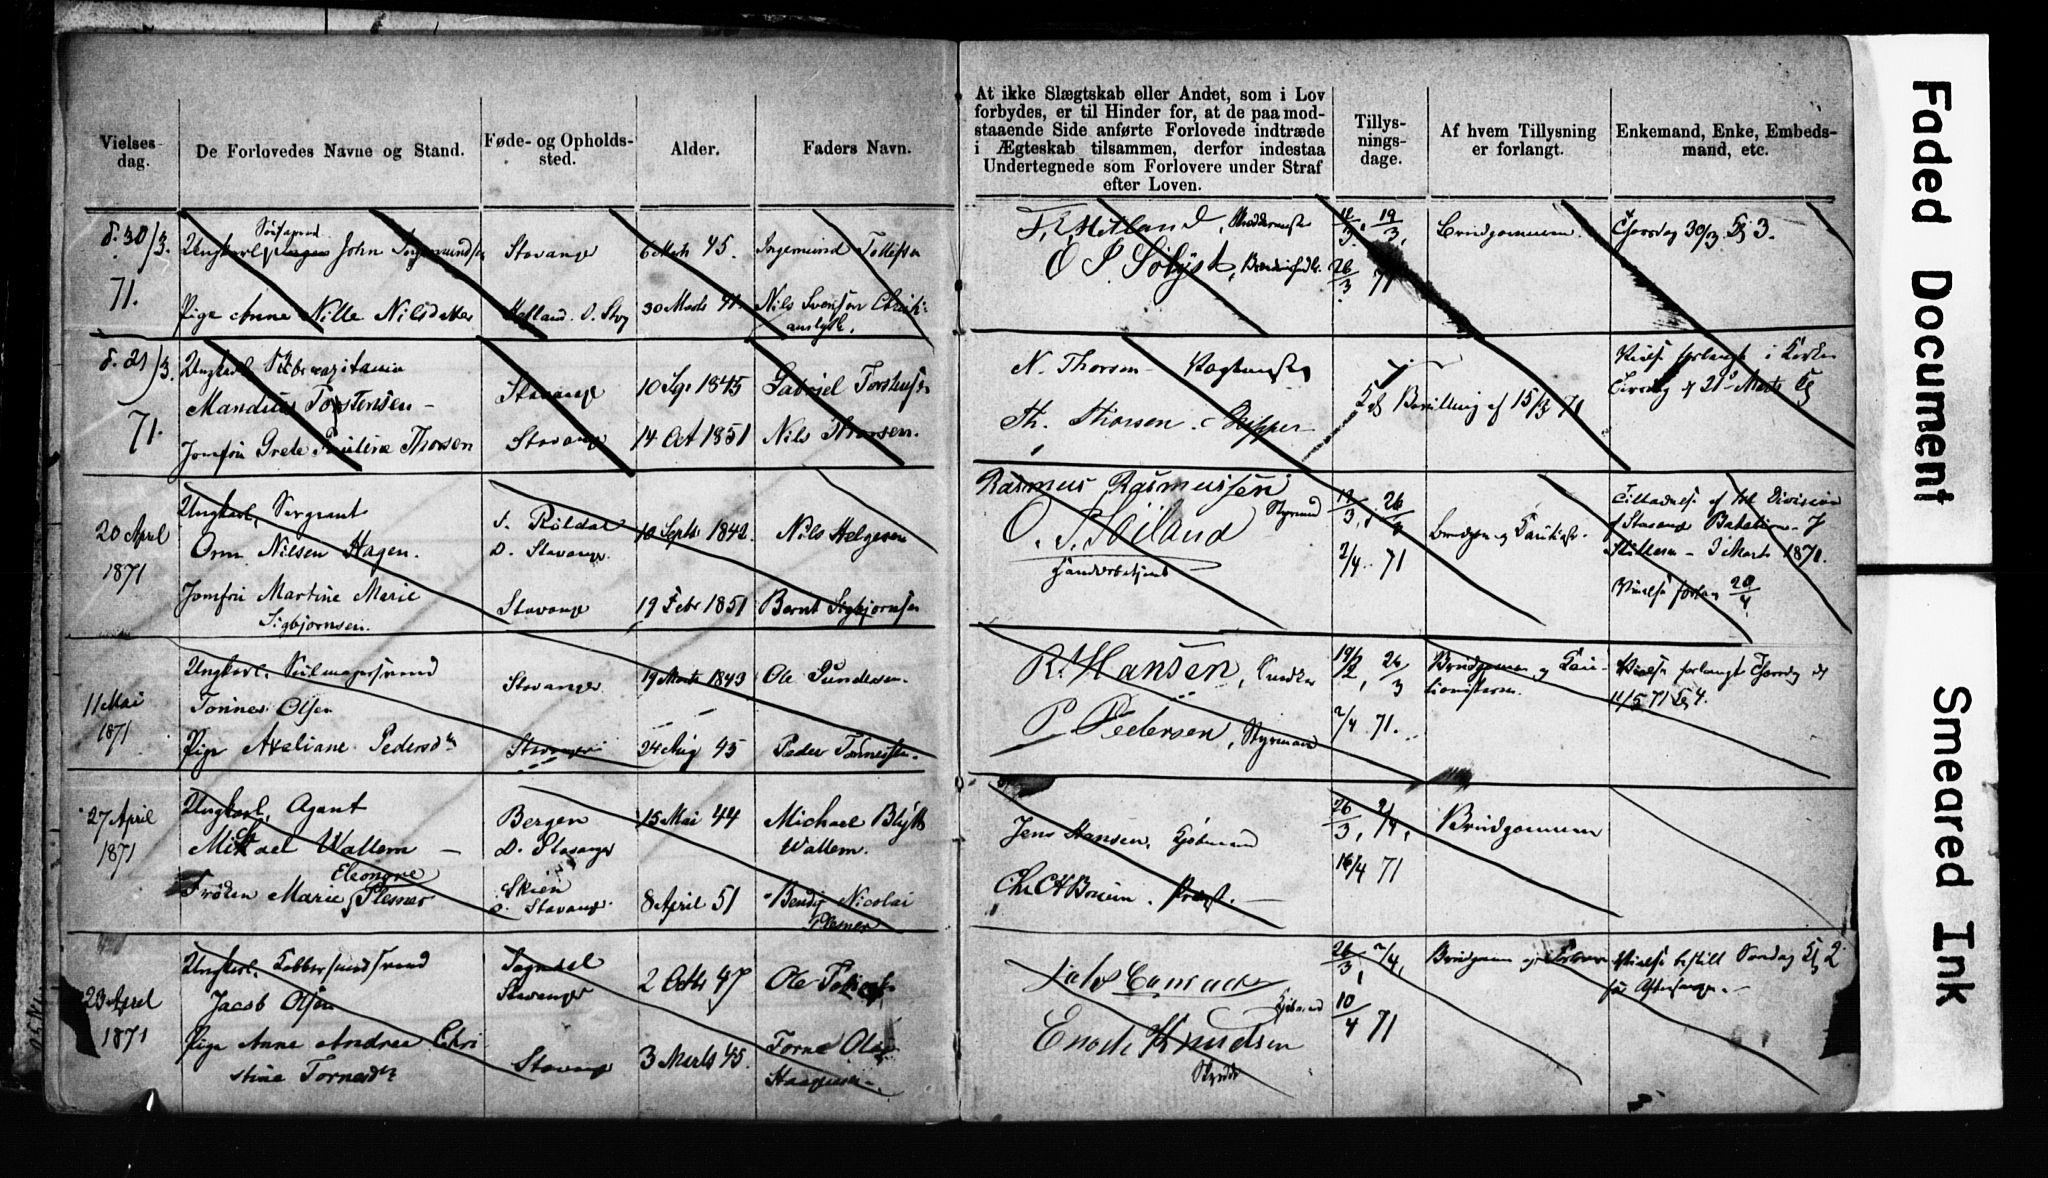 Vielses-
dag.
De Forlovedes Navne og Stand.
Føde- og Opholds-
sted.
Alder.
Faders Navn.
At ikke Slægtskab eller Andet, som i Lov
forbydes, er til Hinder for, at de paa mod-
staaende Side anførte Forlovede indtræde
i Ægteskab tilsammen, derfor indestaa
Undertegnede som Forlovere under Straf
efter Loven.
Tillys-
nings-
dage.
Af hvem Tillysning
er forlangt.
Enkemand, Enke, Embeds-
mand, etc.
d. 30/3.
71.
Ungkarl John Torgermundsen
Stavanger
6 Marts 45.
Torgermund Tollefsen
Pige Anne Nille Nilsdatter
Hetland. O. Stvg
30 Marts 41.
Nils Svensen
Hetland
O S Sölyst
12/3. 19/3.
26/3 71
Brudgommen.
Thorsdag 30/3 Kl 3.
d. 21/3.
71.
Ungkarl
Mandius Torstensen
Stavanger
10 Sep 1845
Gabriel Torstensen
Jomfru Grete Thorsen
Stavanger
14 Oct 1851
Nils Thorsen.
N. Thorsen
Th. Thorsen Skipper
Bevilling af 15/3 71
Vielse forlangt i Kirken
Tirsdag d 21 Marts Kl
20 April
1871
Ungkarl, Sergeant
Orm Nilsen Hagen.
f. Röldal
O. Stavanger
10 Septr 1842.
Nils Helgesen
Jomfru Martine Marie
Sigbjørnsen.
Stavanger
19 Febr 1851
Bernt Sigbjørnsen
Rasmus Rasmussen
Styrmand
O. S. Höiland
19/3, 26/3
2/4 71
Tilladelse af
Stavanger Bataillon
Marts 1871.
Vielse forlangt 20/4
11 Mai
1871
Ungkarl. Seilmagersvend
Tönnes Olsen
Stavanger
19 Marts 1843
Ole Gundersen.
Pige Axeliane Pedersdtr
Stavanger
24 Aug 45
Peder Tönnessen.
R. Hansen,
P Pedersen, Styrman
19/3, 26/3
2/4 71.
Brudgommen og Kau-
tionisterne.
Vielse forlangt Thorsdag d
11/5 71 Kl 4.
27 April
1871
Ungkarl, Agent
Michael Wallem
Bergen
O. Stavanger
15 Mai 44
Michael Blytt
Wallem.
Eleonore
Fröken Marie Plesner
Skien
O. Stavanger.
8 April 51
Bendix Nicolai
Plesner
Jens Hansen, Kjöbmand
Chr CH Bruun. Præst.
26/3, 2/4,
16/4 71
Brudgommen
23 April
1871
Ungkarl. Kobbersmedsvend
Jacob Olsen
Sogndal
Stavanger
2 Octbr 47
Ole
Pige Anne Andrea Chri
stine Tornesdtr
Stavanger
3 Marts 45.
Torne Olsen
Jakob Conrads
Kjöbmand
Enoch Knudsen
26/3, 2/4,
10/4 71
Brudgom og Forlovere
Vielse bestilt Söndag Kl 2
för Aftensangen.
Faded Document
Smeared Ink